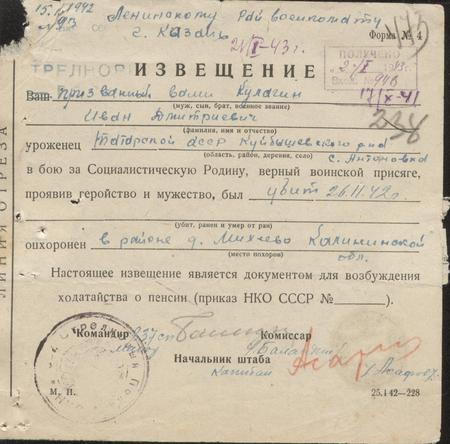 15. 1942 Ленинскому Райвоенкомату
№ 93 г. Казань
Форма № 4
21/I-43 г.
145
ПОЛУЧЕНО
ИЗВЕЩЕНИЕ
17/X-41
238
Ваш призванный вами Кулагин
(муж, сын, брат, военное звание)
Иван Дмитриевич
(фамилия, имя и отчество)
уроженец Татарской АССР Куйбышевского р-на
(область, район, деревня, село) с. Антоновка
в бою за Социалистическую Родину, верный воинской присяге,
проявив геройство и мужество, был убит 26.11.42 г.
(убит, ранен и умер от ран)
похоронен в районе д. Михеево Калининской
(место похорон) обл.
Настоящее извещение является документом для возбуждения
ходатайства о пенсии (приказ НКО СССР № ).
Командир 237 сп Комиссар
Начальник штаба
капитан
М. П.
25.I 42—228
ЛИНИЯ ОТРЕЗА